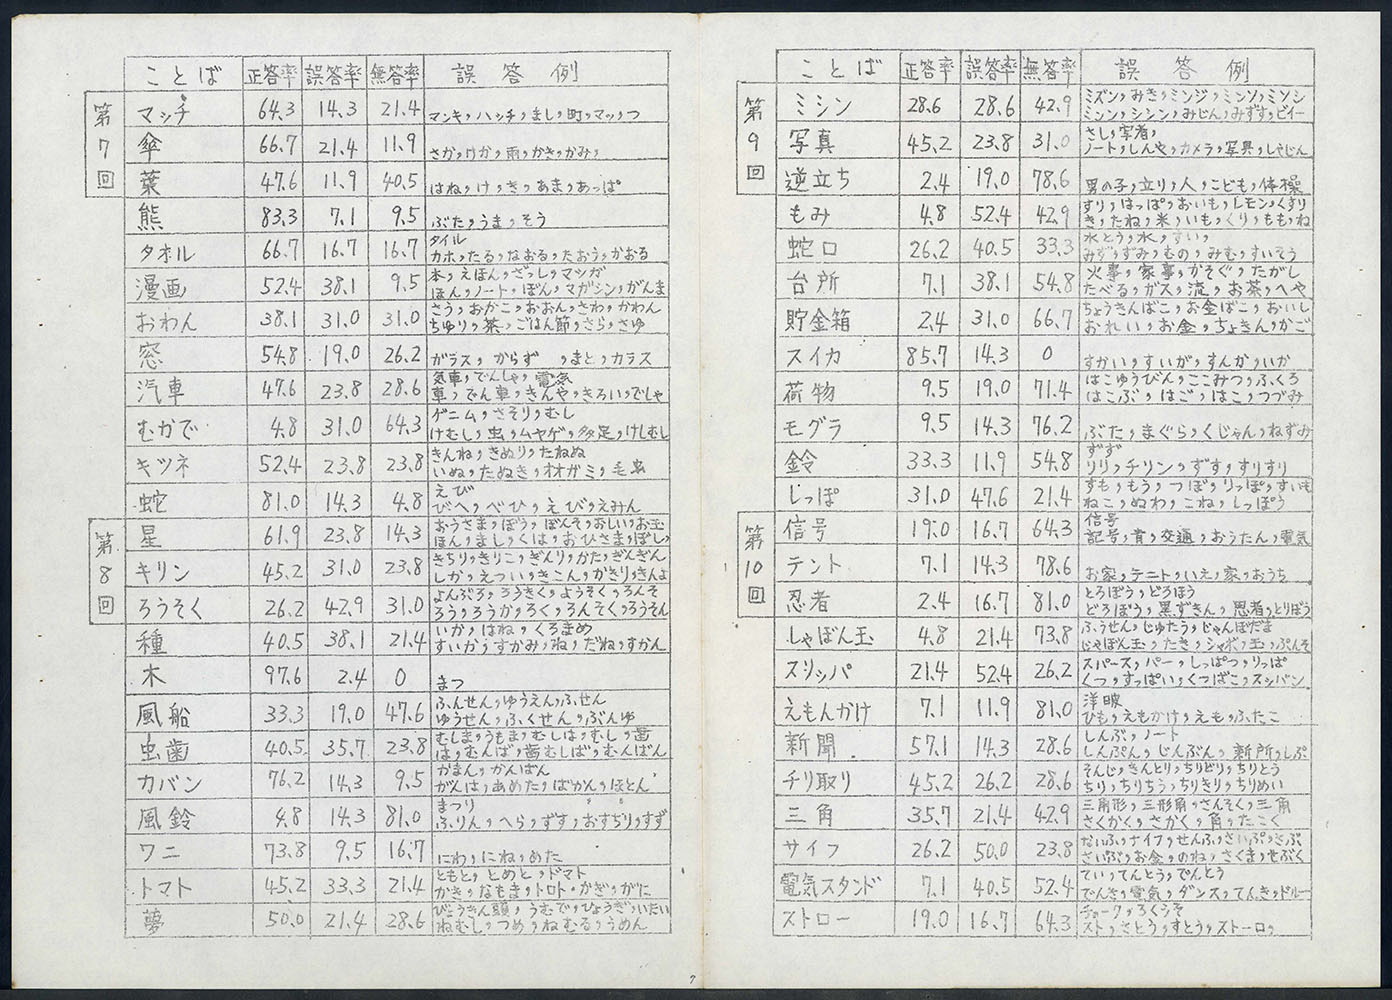 ことば 正答率 誤答率 無答率 誤答例
第7回
マッチ 64.3 14.3 21.4 マンキ,ハッチ,まし,町,マッ,つ
傘 66.7 21.4 11.9 さか,けか,雨,かき,かみ,
葉 47.6 11.9 40.5 はね,け,き,あま,あっぱ
熊 83.3 7.1 9.5 ぶた,うま,そう
タオル 66.7 16.7 16.7 タイル
カホ,たる,なおる,たおう,かおる
漫画 52.4 38.1 9.5 本,えほん,ざっし,マンガ
ほん,ノート,ぼん,マガジン,がんま
おわん 38.1 31.0 31.0 さう,おかこ,おおん,さわ,かわん
ちゅり,茶,ごはん節,さら,さゆ
窓 54.8 19.0 26.2 ガラス,からず ,まと,カラス
汽車 47.6 23.8 28.6 気車,でんしゃ,電気
車,でん車,きんや,きろい,でしゃ
むかで 4.8 31.0 64.3 ゲニム,さそり,むし
けむし,虫,ムヤゲ,多足,けしむし
キツネ 52.4 23.8 23.8 きんね,きぬり,たねぬ
いぬ,たぬき,オオガミ,毛虫
蛇 81.0 14.3 4.8 えび
びへ,べひ,えび,えみん
第8回
星 61.9 23.8 14.3 おうさま,ぼう,ぼんそ,おしい,お玉
ほん,まし,くは,おひさま,ぼし,
キリン 45.2 31.0 23.8 きちり,きりこ,ぎんり,かた,ぎんぎん
しか,えつい,きこん,かきり,きんよ
ろうそく 26.2 42.9 31.0 よんぶろ,ろうきく,ようそく,ろんそ
ろう,ろうか,ろく,ろんそく,ろうそん
種 40.5 38.1 21.4 いか,はね,くろまめ
すいか,すかみ,ね,だね,すかん
木 97.6 2.4 0 まつ
風船 33.3 19.0 47.6 ふんせん,ゆうえん,ふせん
ゆうせん,ふくせん,ぶんゆ
虫歯 40.5 35.7 23.8 むしま,うもま,むしは,むし,歯
は,むんば,歯むしば,むんばん
カバン 76.2 14.3 9.5 かまん,かんばん
がんは,あめた,ばかん,ほとん
風鈴 4.8 14.3 81.0 まつり
ふりん,へら,ずす,おすぢり,すず
ワニ 73.8 9.5 16.7 にわ,にね,めた
トマト 45.2 33.3 21.4 ともと,とめと,ドマト
かき,なもま,トロト,かぎ,がに
夢 50.0 21.4 28.6 びょうきん頭,うむで,ひょうぎ,いたい
ねむし,つめ,ねむる,うめん
7
ことば 正答率 誤答率 無答率 誤答例
第9回
ミシン 28.6 28.6 42.9 ミズン,みき,ミンジ,ミンソ,ミソシ
ミンン,シンン,みじん,みずす,ビイー
写真 45.2 23.8 31.0 さし,写者,
ノート,しんや,カメラ,写具,しゃじん
逆立ち 2.4 19.0 78.6 男の子,立り,人,こども,体操
もみ 4.8 52.4 42.9 すり,はっぱ,おいも,レモン,くすり
き,たね,米,いも,くり,もも,ね
蛇口 26.2 40.5 33.3 水とう,水,すい,
みず,ずみ,もの,みむ,すいそう
台所 7.1 38.1 54.8 火事,家事,かそぐ,たがし
たべる,ガス,流,お茶,へや
貯金箱 2.4 31.0 66.7 ちょうきんばこ,お金ばこ,おいし
おれい,お金,ちょきん,かご
スイカ 85.7 14.3 0 すかい,すいが,すんか,いか
荷物 9.5 19.0 71.4 はこゆうびん,ここみつ,ふくろ
はこぶ,はご,はこ,つづみ
モグラ 9.5 14.3 76.2 ぶた,まぐら,くじゃん,ねずみ
鈴 33.3 11.9 54.8 ずず
リリ,チリン,ずす,すりすり
しっぽ 31.0 47.6 21.4 すも,もう,つぼ,りっぽ,すいも
ねこ,ぬわ,こね,しっぽう
第10回
信号 19.0 16.7 64.3 信号
記号,青,交通,おうたん,電気
テント 7.1 14.3 78.6 お家,テニト,いえ,家,おうち
忍者 2.4 16.7 81.0 とろぼう,どろほう
どろぼう,黒ずきん,思者,とりぼう
しゃぼん玉 4.8 21.4 73.8 ふうせん,じゅたう,じゃんぼだま
じゃぼん玉,たき,シャボ,玉,ぷんそ
スリッパ 21.4 52.4 26.2 スパース,パー,しっぱつ,りっぱ
くつ,すっぱい,くつばこ,スシバン
えもんかけ 7.1 11.9 81.0 洋服
ひも,えもかけ,えも,ふたこ
新聞 57.1 14.3 28.6 しんぶ,ノート
しんぷん,じんぶん,新所,しぷ
チリ取り 45.2 26.2 28.6 そんじ,きんとり,ちりどり,ちりとう
ちり,ちりちう,ちりきり,ちりめい
三角 35.7 21.4 42.9 三角形,三形角,さんそく,三角
さくかく,さかく,角,たこく
サイフ 26.2 50.0 23.8 ないふ,ナイフ,せんふ,さいぷ,さぶ
さいぶ,お金,のね,さくま,せぶく
電気スタンド 7.1 40.5 52.4 てい,てんとう,でんとう
でんき,電気,ダンス,てんき,ドルー
ストロー 19.0 16.7 64.3 チョーク,ろくうそ
スト,さとう,すとう,ストーロ,